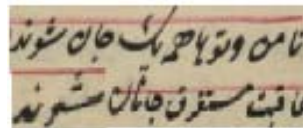 تا من و توها همه یک جان شوند
عاقبت مستغرق جانان شوند